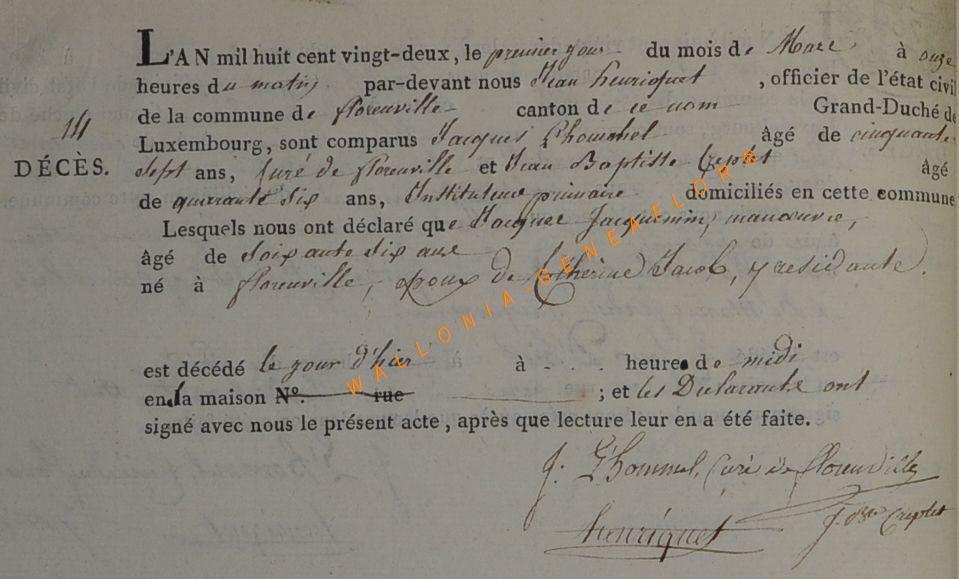 L'AN mil huit cent vingt-deux, le premier jour du mois de Mars à onze
heures du matin par-devant nous Jean henriquet, officier de l'état civil
de la commune de florenville canton de ce nom Grand-Duché de
Luxembourg, sont comparus Jacques Lhommel âgé de cinquante
14 DÉCÈS. sept ans, Curé de florenville et Jean Baptiste Creplet âgé
de quarante six ans, Instituteur primaire domiciliés en cette commune
Lesquels nous ont déclaré que Jacques Jacquemin, manœuvre,
âgé de soixante six ans
né à florenville, époux de Catherine Jacob, y residante.
est décédé le jour d'hier à - - . heures de midi
en la maison N°. rue ; et les Declarants ont
signé avec nous le présent acte, après que lecture leur en a été faite.
J. L'hommel, Curé de florenville
henriquet J. Bte Creplet
WALLONIA-GENEAFLOR©